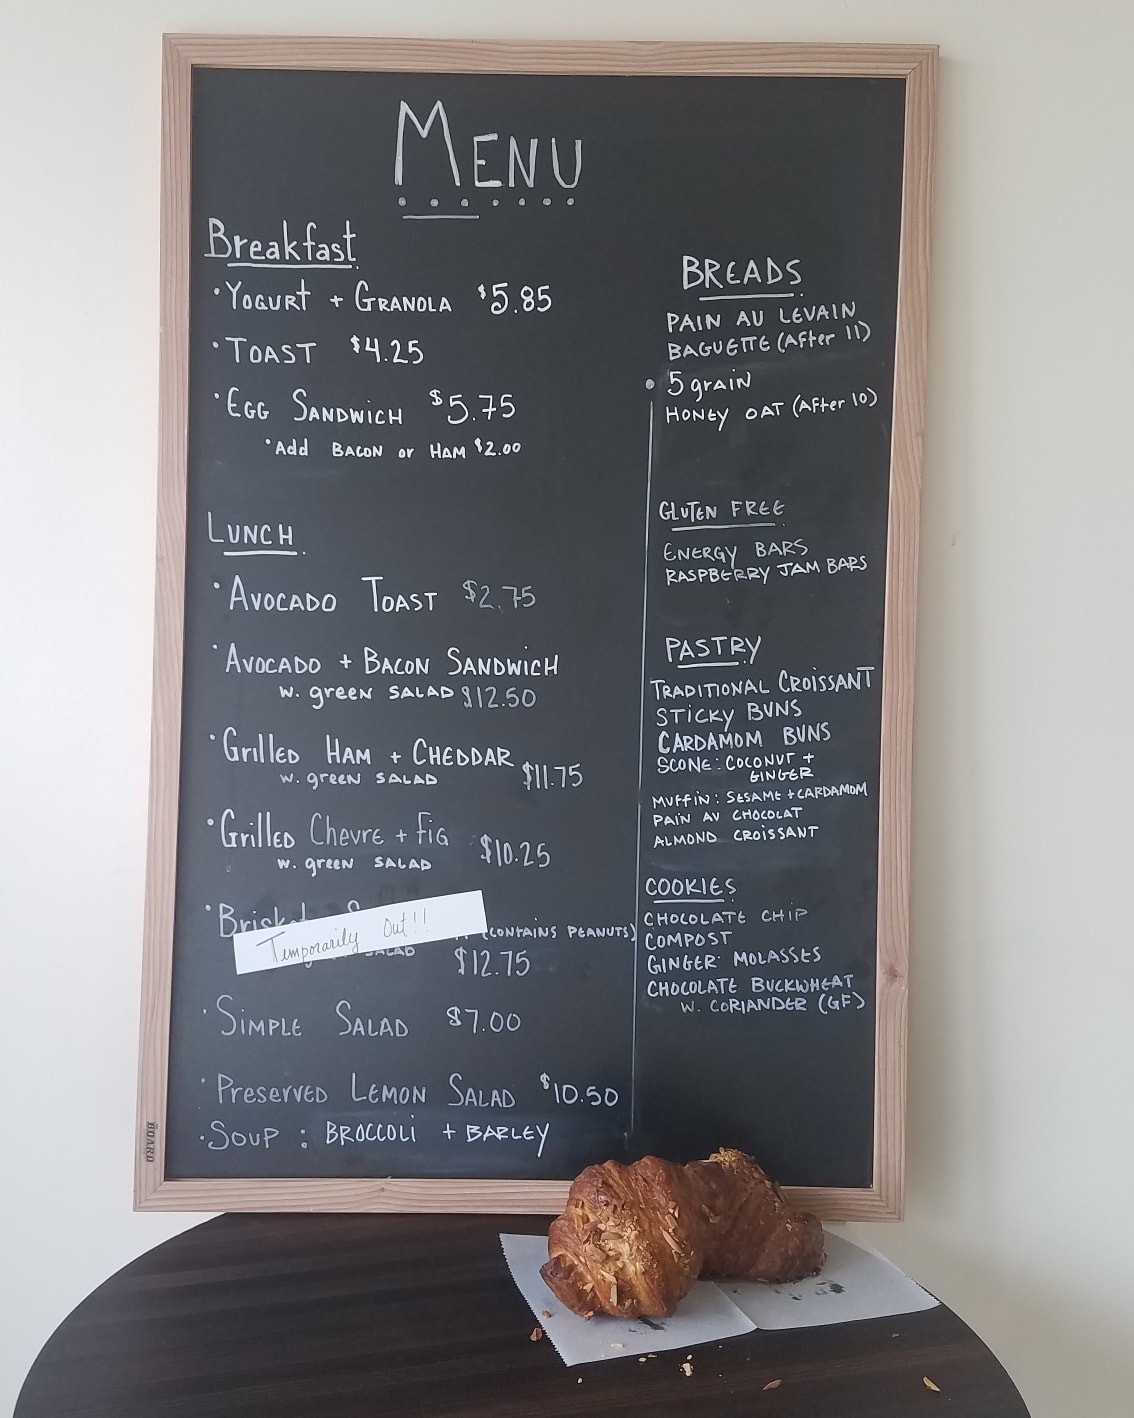 MENU
Breakfast
• YOGURT + GRANOLA $5.85
• TOAST $4.25
• EGG SANDWICH $5.75
• Add BACON or HAM $2.00
LUNCH
• AVOCADO TOAST $2.75
• AVOCADO + BACON SANDWICH
w. green SALAD $12.50
• Grilled HAM + CHEDDAR
w. green SALAD $11.75
• Grilled Chevre + Fig
w. green SALAD $10.25
• Brisket
Temporarily Out!!
(CONTAINS PEANUTS)
SALAD $12.75
• SIMPLE SALAD $7.00
• Preserved LEMON SALAD $10.50
• SOUP : BROCCOLI + BARLEY
BREADS
PAIN AU LEVAIN
BAGUETTE (After 11)
• 5 grain
HONEY OAT (After 10)
GLUTEN FREE
ENERGY BARS
RASPBERRY JAM BARS
PASTRY
TRADITIONAL CROISSANT
STICKY BUNS
CARDAMOM BUNS
SCONE: COCONUT +
GINGER
MUFFIN: SESAME + CARDAMOM
PAIN AU CHOCOLAT
ALMOND CROISSANT
COOKIES
CHOCOLATE CHIP
COMPOST
GINGER MOLASSES
CHOCOLATE BUCKWHEAT
W. CORIANDER (GF)
BOARD